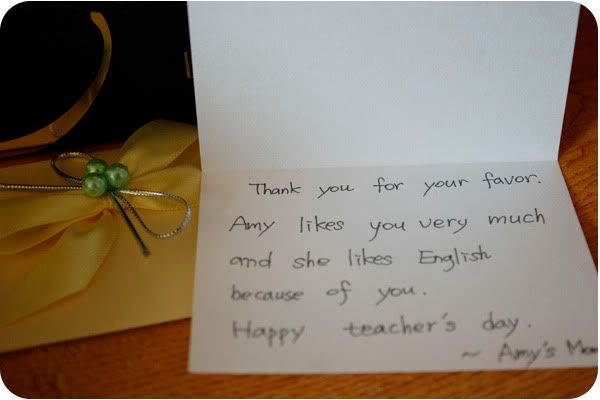 Thank you for your favor.
Amy likes you very much
and she likes English
because of you.
Happy teacher's day.
~ Amy's Mom